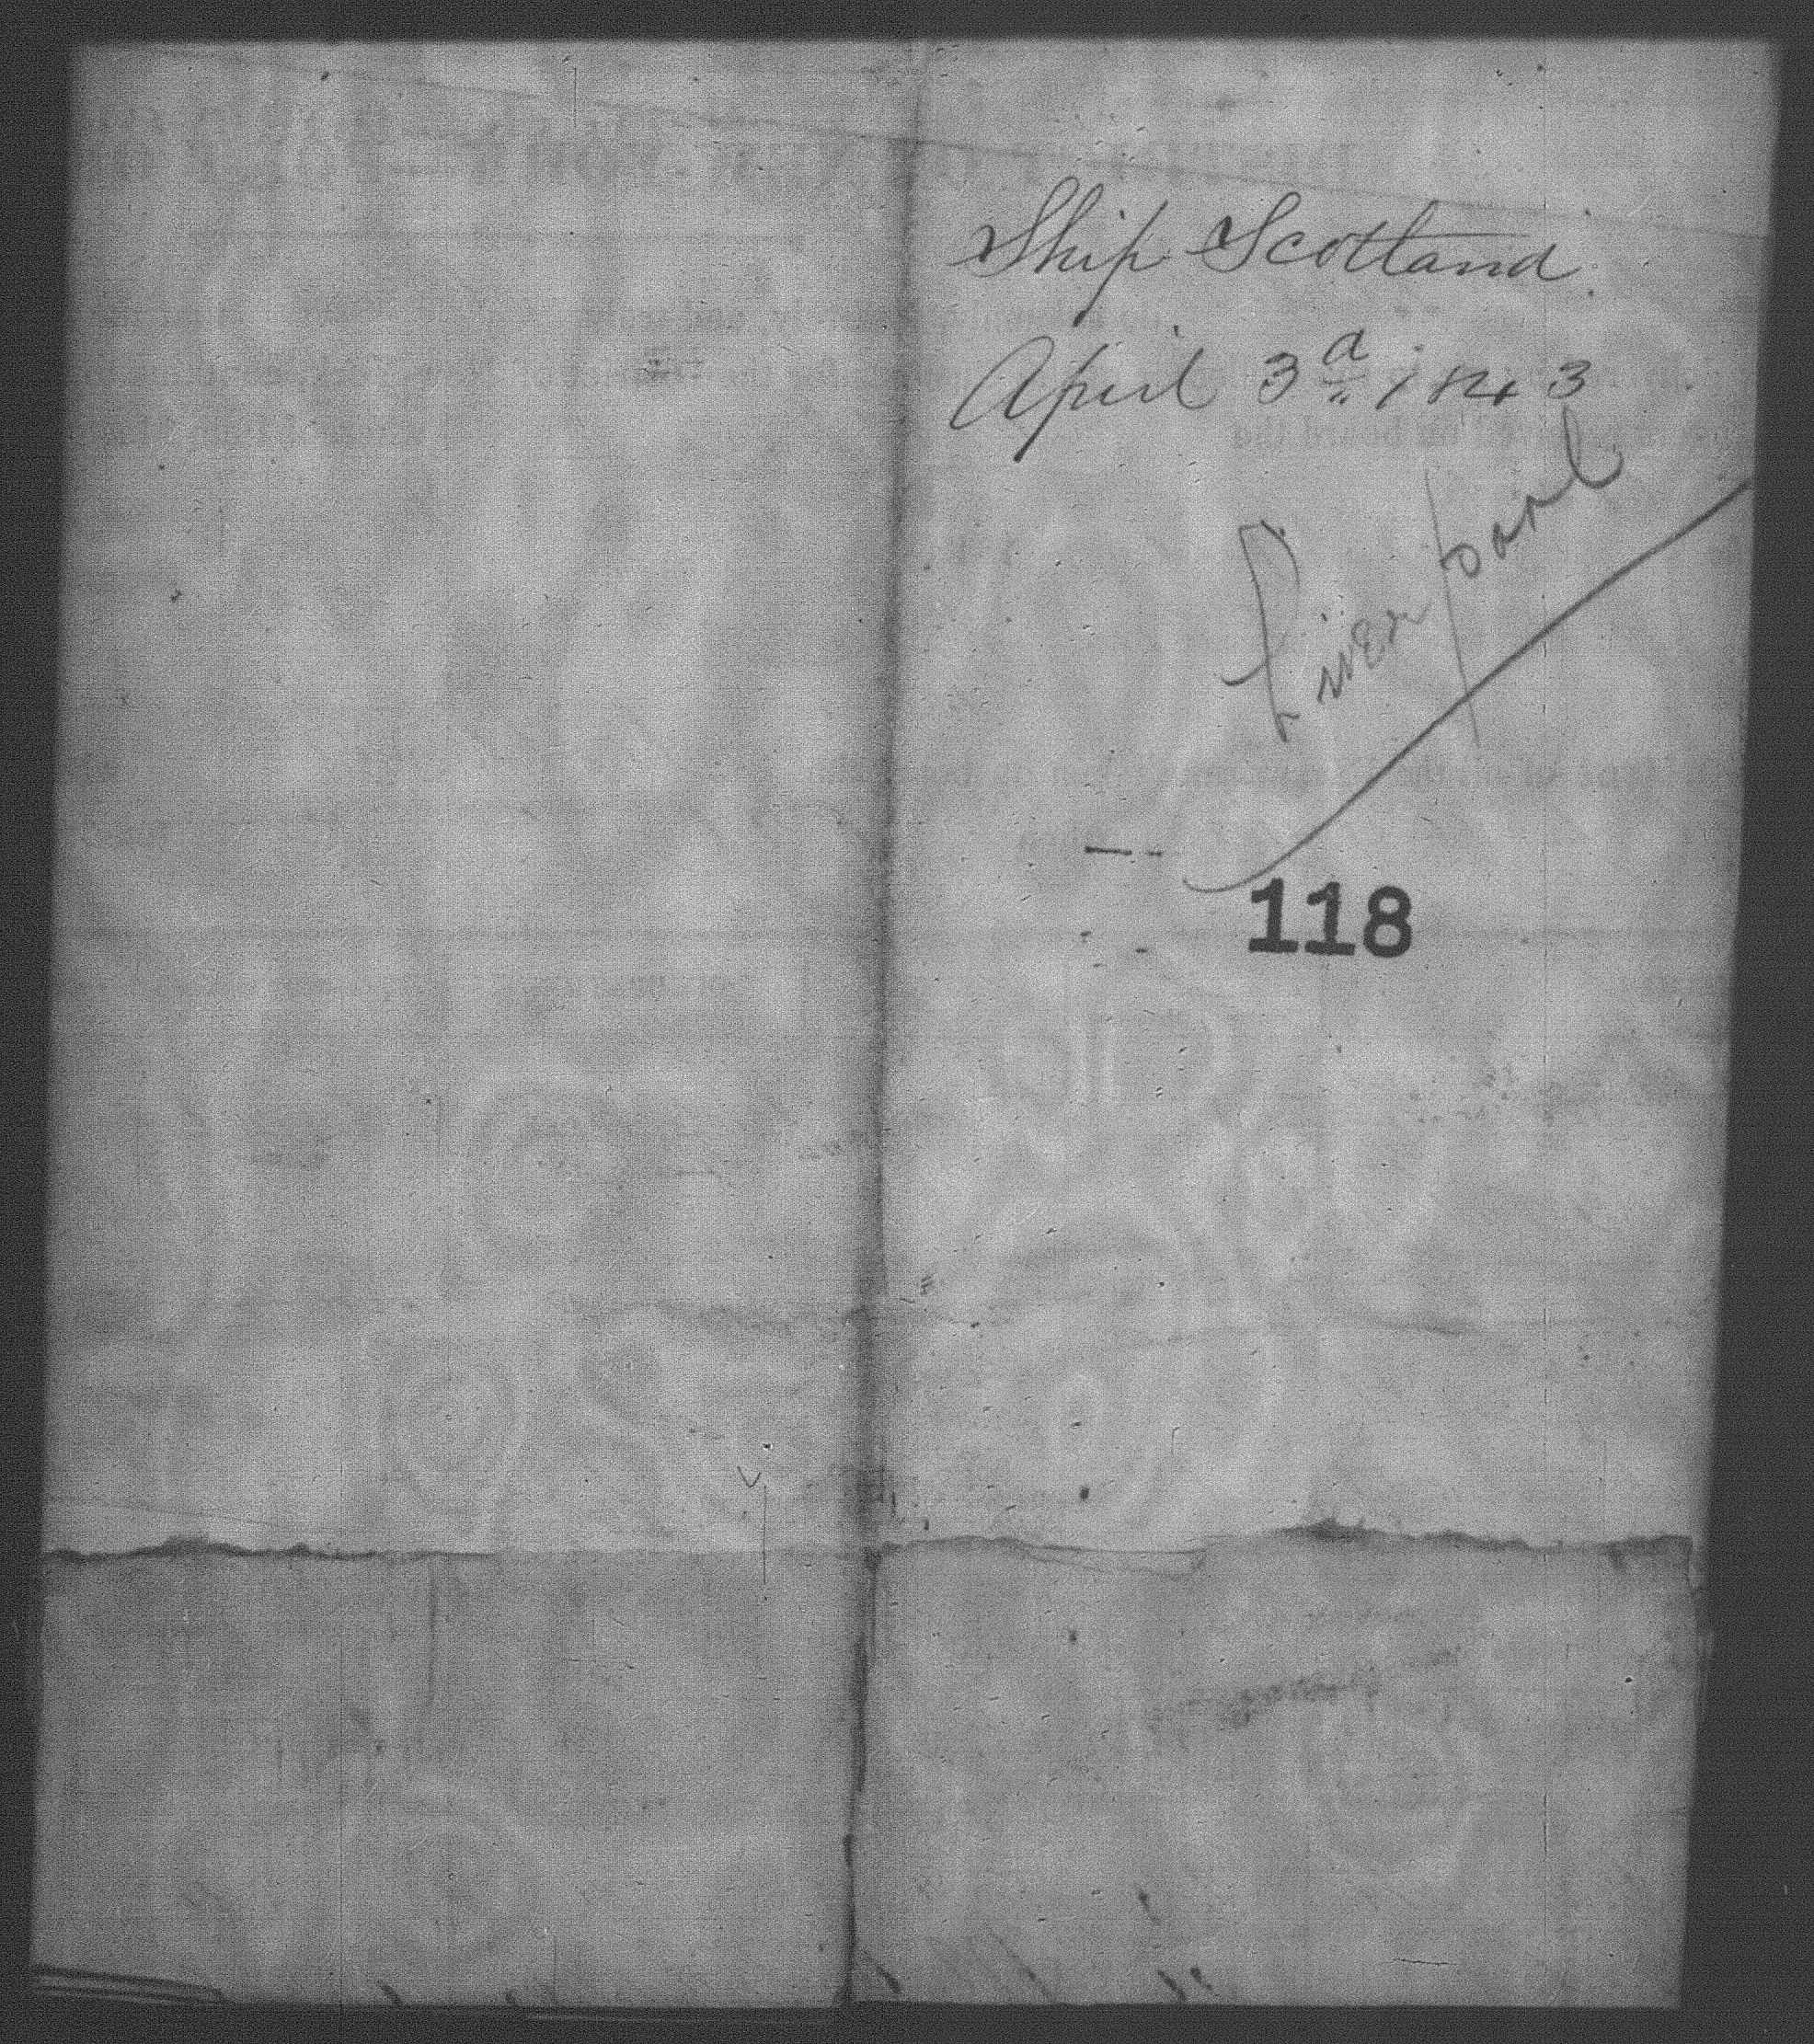 Ship Scotland.
April 3d 1843
Liverpool
118